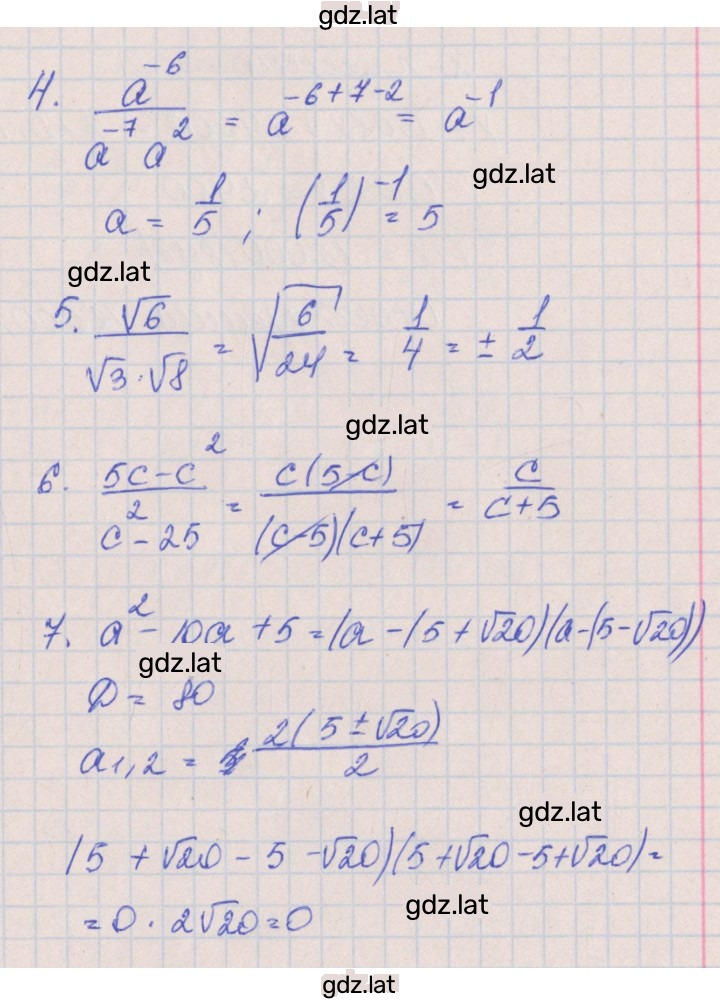 gdz.lat
4. a^-6 / a^-7 a^2 = a^-6+7-2 = a^-1
gdz.lat
a = 1/5 ; (1/5)^-1 = 5
gdz.lat
5. √6 / √3·√8 = √(6/24) = 1/4 = ± 1/2
gdz.lat
6. 5c-c^2 / c^2-25 = c(5-c) / (c-5)(c+5) = c / c+5
7. a^2 - 10a + 5 = (a-(5+√20)(a-(5-√20))
gdz.lat
D = 80
a1,2 = 2(5±√20) / 2
gdz.lat
(5 + √20 - 5 - √20)(5+√20-5+√20) =
= 0 · 2√20 = 0
gdz.lat
gdz.lat